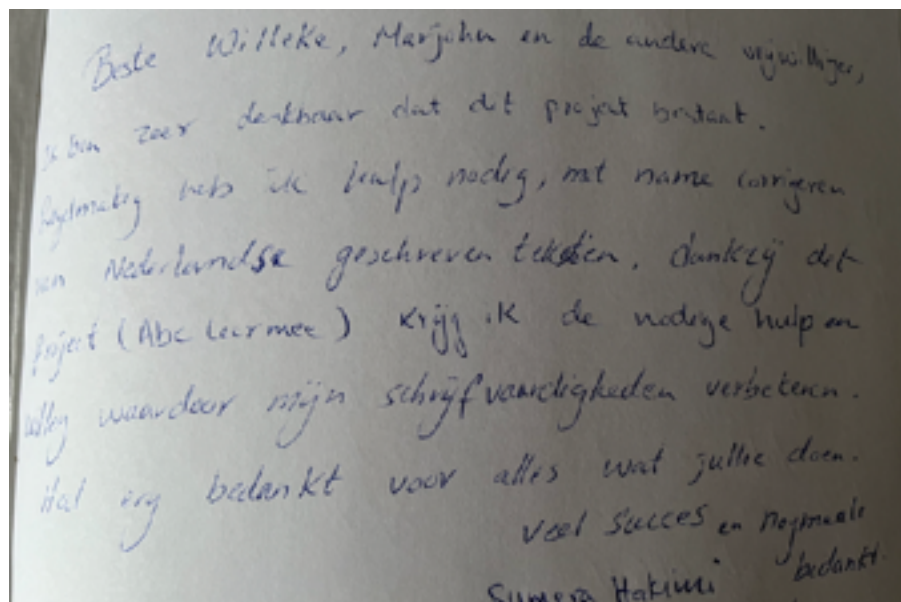 Beste Willeke, Marjohn en de andere vrijwilliger,
ik ben zeer dankbaar dat dit project bestaat.
Regelmatig heb ik hulp nodig, met name corrigeren
van Nederlandse geschreven teksten. dankzij dit
Project (Abc Leer mee) krijg ik de nodige hulp en
waardoor mijn schrijfvaardigheden verbeteren.
Heel erg bedankt voor alles wat jullie doen.
Veel succes en nogmaals
bedankt
Sumera Hakimi